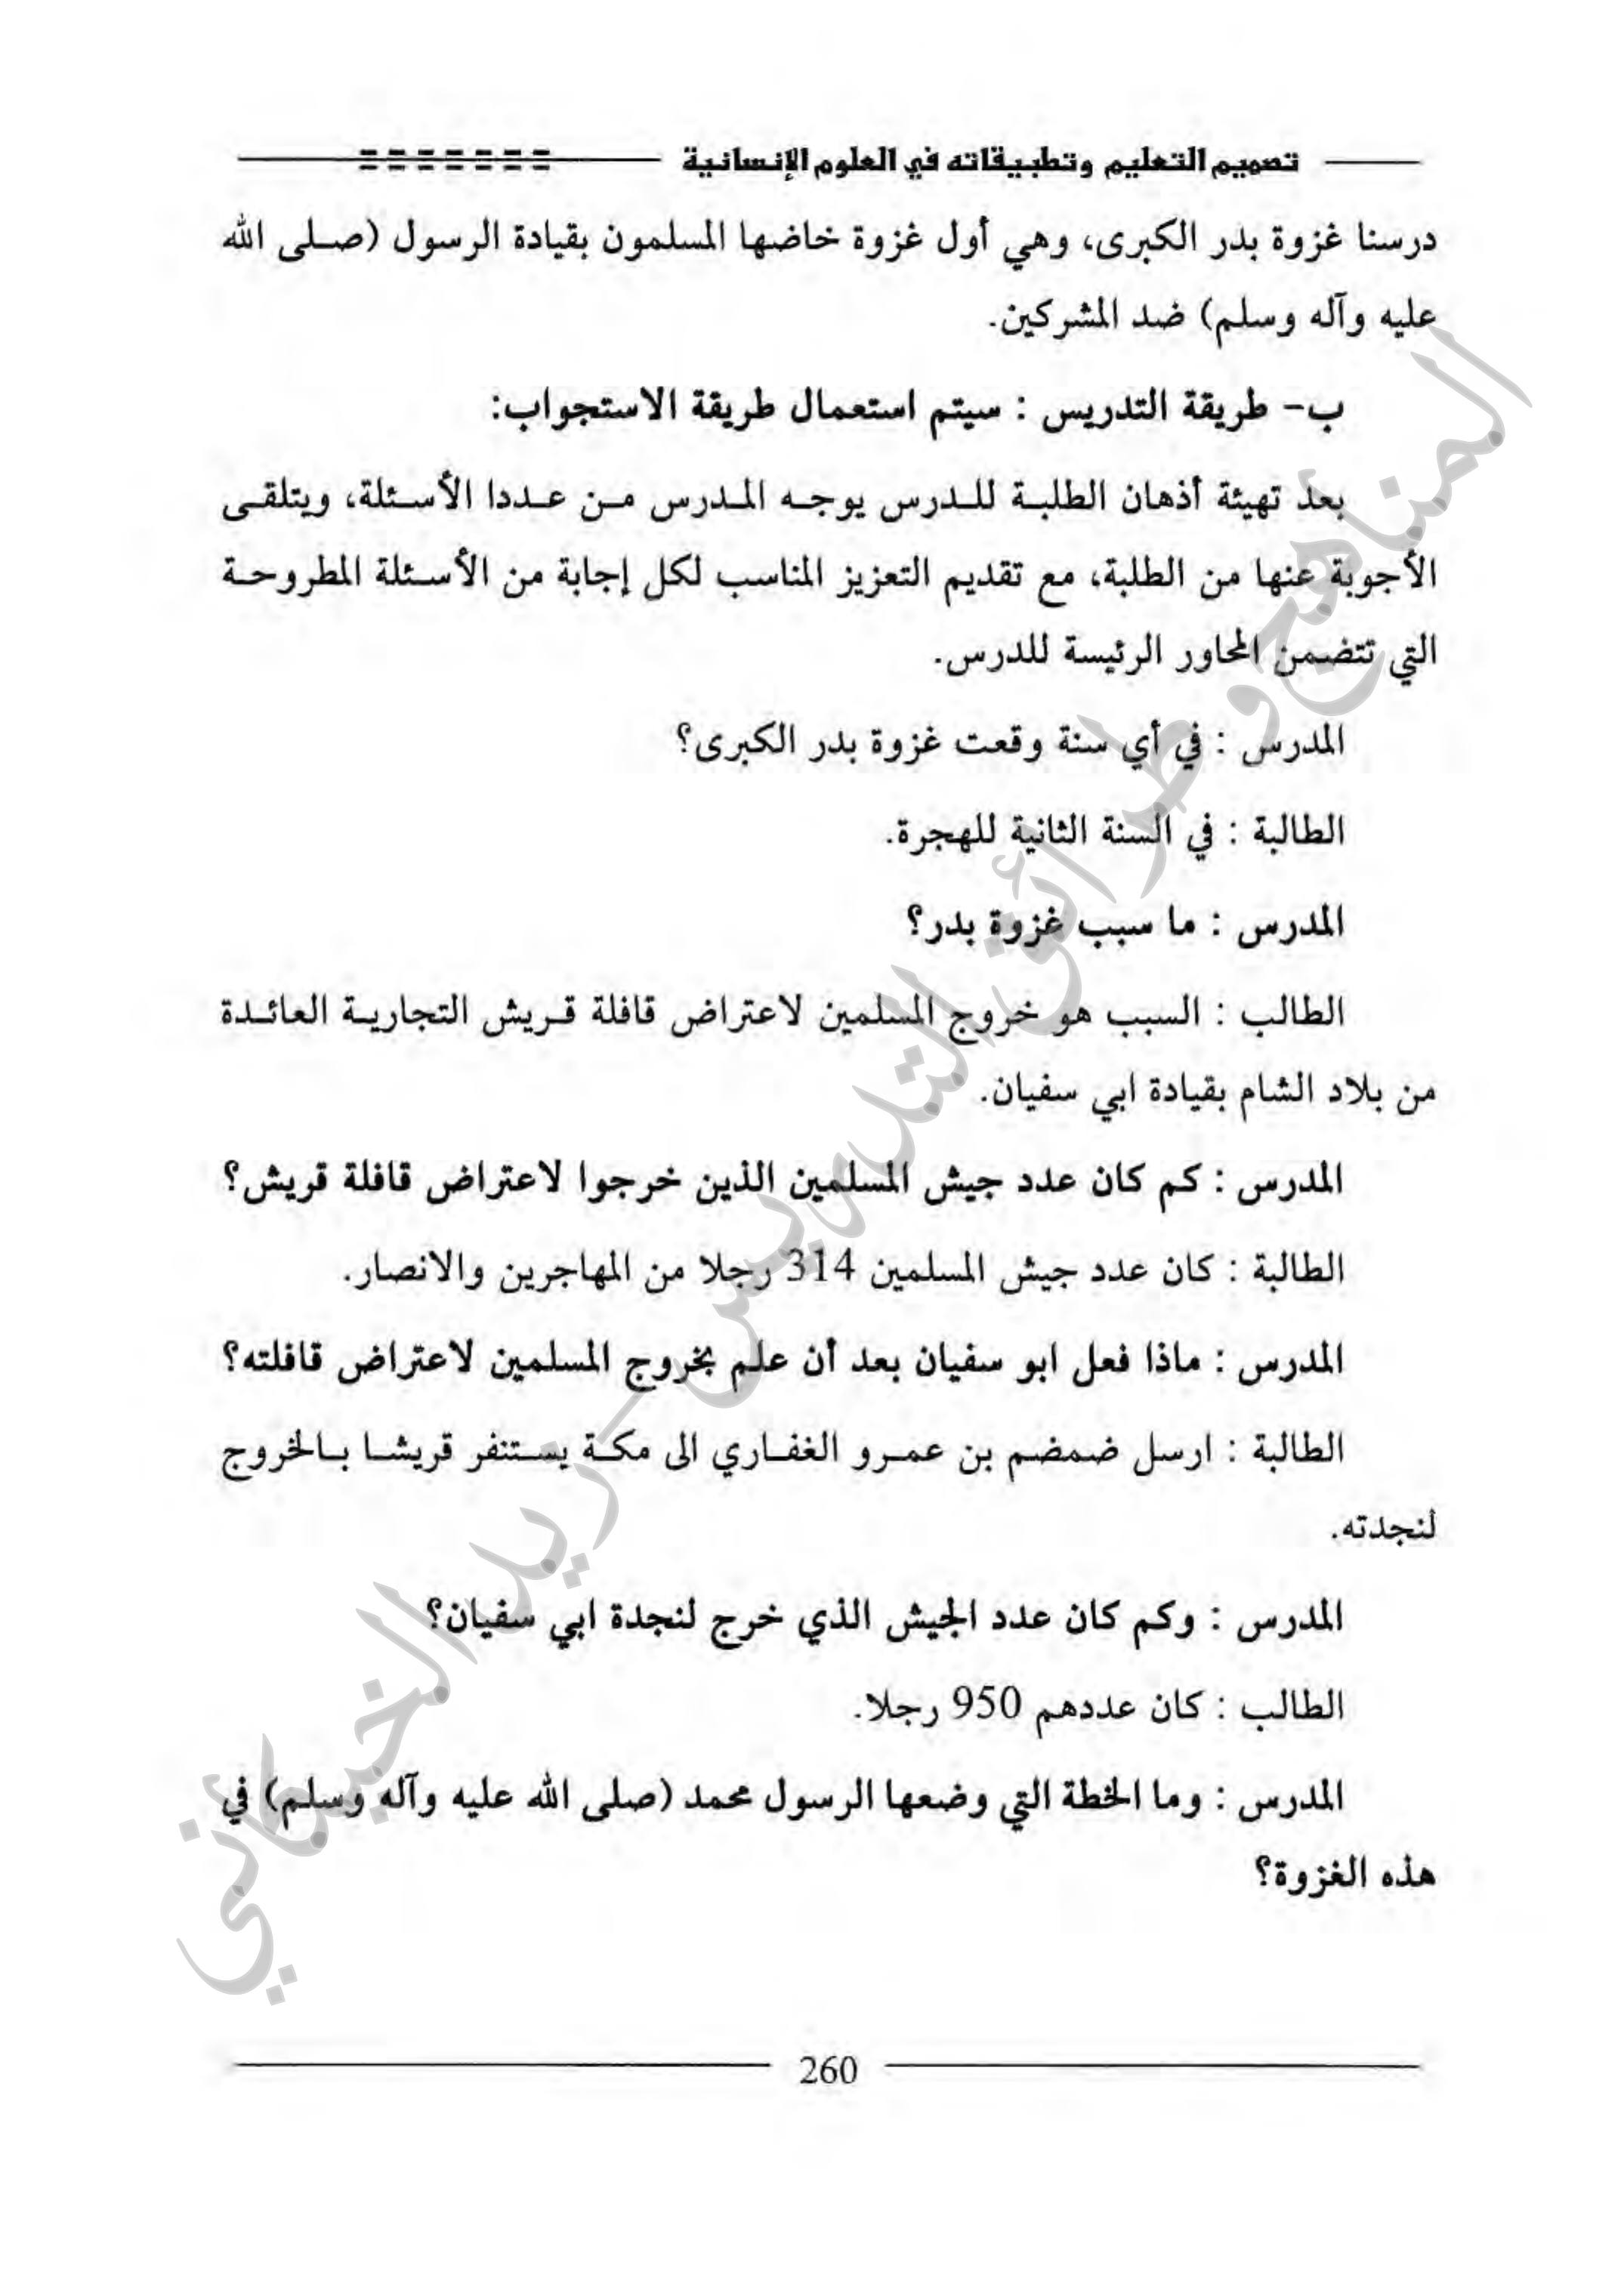 تصميم التعليم وتطبيقاته في العلوم الإنسانية
درسنا غزوة بدر الكبرى، وهي أول غزوة خاضها المسلمون بقيادة الرسول (صلى الله
عليه وآله وسلم) ضد المشركين.
ب- طريقة التدريس : سيتم استعمال طريقة الاستجواب:
بعد تهيئة أذهان الطلبة للدرس يوجه المدرس من عددا الأسئلة، ويتلقى
الأجوبة عنها من الطلبة، مع تقديم التعزيز المناسب لكل إجابة من الأسئلة المطروحة
التي تتضمن المحاور الرئيسة للدرس.
المدرس : في أي سنة وقعت غزوة بدر الكبرى؟
الطالبة : في السنة الثانية للهجرة.
المدرس : ما سبب غزوة بدر؟
الطالب : السبب هو خروج المسلمين لاعتراض قافلة قريش التجارية العائدة
من بلاد الشام بقيادة ابي سفيان.
المدرس : كم كان عدد جيش المسلمين الذين خرجوا لاعتراض قافلة قريش؟
الطالبة : كان عدد جيش المسلمين 314 رجلا من المهاجرين والانصار.
المدرس : ماذا فعل ابو سفيان بعد أن علم بخروج المسلمين لاعتراض قافلته؟
الطالبة : ارسل ضمضم بن عمرو الغفاري الى مكة يستنفر قريشا بالخروج
لنجدته.
المدرس : وكم كان عدد الجيش الذي خرج لنجدة ابي سفيان؟
الطالب : كان عددهم 950 رجلا.
المدرس : وما الخطة التي وضعها الرسول محمد (صلى الله عليه وآله وسلم) في
هذه الغزوة؟
260
المناهج وطرائق التدريس - زيد الخيكاني